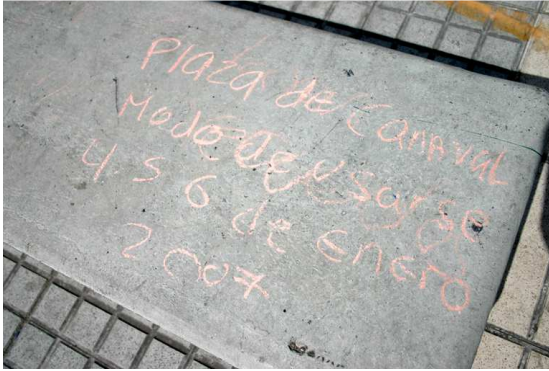 Plata de Canaval
Modo de usarse
4 5 6 de Enero
2007